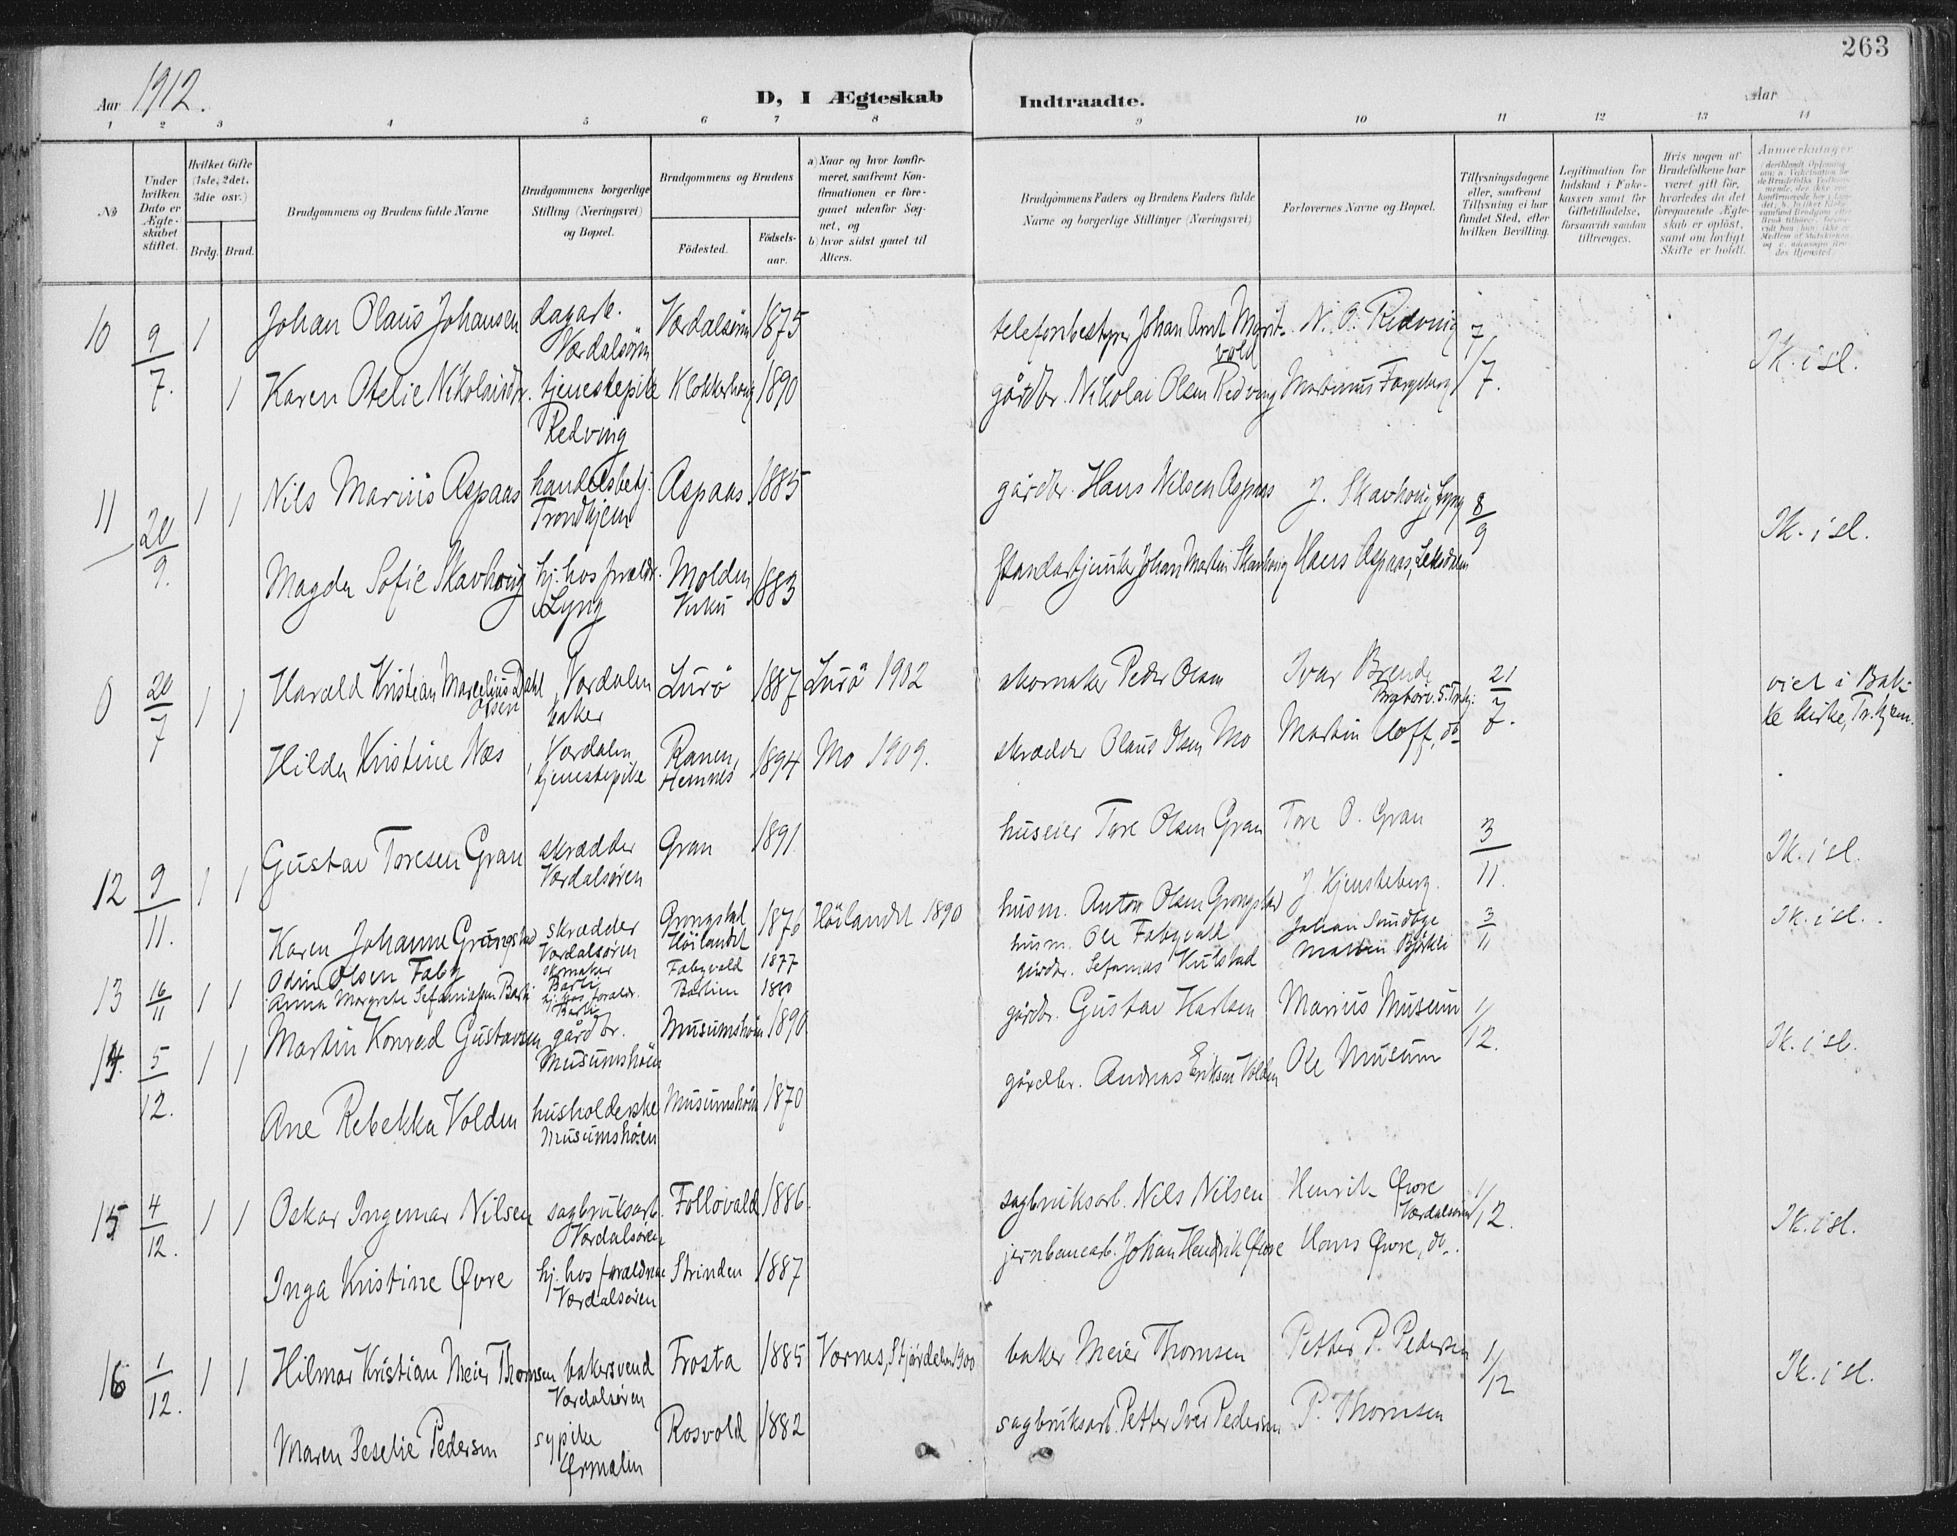 263
Aar 1912.
D, I Ægteskab Indtraadte.
Aar
1 2 3 4 5 6 7 8 9 10 11 12 13 14
No
Under hvilken Dato er Ægteskabet stiftet.
Hvilket Gifte (1ste, 2det, 3die osv.)
Brdg. Brud.
Brudgommens og Brudens fulde Navne
Brudgommens borgerlige Stilling (Næringsvei) og Bopæl.
Brudgommens og Brudens
Fødested. Fødselsaar.
a) Naar og hvor konfirmeret, saafremt Konfirmationen er foregaaet udenfor Sognet, og
b) hvor sidst gaaet til Alters.
Brudgommens Faders og Brudens Faders fulde Navne og borgerlige Stillinger (Næringsvei)
Forlovernes Navne og Bopæl.
Tillysningsdagene eller, saafremt Tillysning ei har fundet Sted, efter hvilken Bevilling.
Legitimation for Indskud i Enkekassen samt for Giftetilladelse, forsaavidt saadan tiltrænges.
Hvis nogen af Brudefolkene har været gift før, hvorledes da det foregaaende Ægteskab er opløst, samt om lovligt Skifte er holdt.
Anmærkninger
10 9/7. 1 Johan Olaus Johansen dagarb. Værdalsøren Værdalsøren 1875 telefonbestyrer Johan Arnt Myrvold N. O. Redving 7/7. Ik. i sl.
1 Karen Otelie Nikolaisdr. tjenestepike Redving Klokkerhaug 1890 gårdbr. Nikolai Olsen Redving Martinus Færgeberg
11 20/9. 1 1 Nils Marius Aspaas handelsbetj. Trondhjem Aspaas 1885 gårdbr. Hans Nilsen Aspaas J. Skavhaug, Lyng 8/9 Ik. i sl.
Magda Sofie Skavhaug hj. hos foreldr. Lyng Molden 1883 standartjunker Johan Martin Skavhaug Hans Aspaas, Leksdalen
0 20/7 1 1 Harald Kristian Marcelius Dahl Olsen Værdalen baker Lurö 1887 Lurö 1902 skomaker Peder Olsen Ivar Brende 21/7. viet i Bakke kirke, Tr.hjem.
Hilda Kristine Næs Værdalen tjenestepike Ranen, Hemnes 1894 Mo 1909. skrædder Olaus Olsen Mo Martin Hoff, do
12 9/11. 1 1 Gustav Toresen Gran skrædder Værdalsøren Gran 1891 huseier Tore Olsen Gran Tore O. Gran 3/11. Ik. i sl.
Karen Johanne Grongstad skrædder Værdalsøren Grongstad Höilandet 1876 Höilandet 1890 husm. Anton Olsen Grongstad J. Hjensteberg.
13 16/11 1 1 Odin Olsen Faby skomaker Barli Fabyvald 1877 husm. Ole Fabyvald Johan Smedbye 3/11 Ik. i sl.
Anna Margrete Sefaniasen Barli hj. hos foreldr. Barli Bartien 1880 gårdbr. Sefanias Kulstad Martin Björkli
14 5/12. 1 1 Martin Konrad Gustavsen gårdbr. Musumshöen Musumshöen 1890 gårdbr. Gustav Karlsen Marius Museum 1/12. Ik. i sl.
Ane Rebekka Volden husholderske Musumshöen Musumshöen 1870 gårdbr. Andreas Eriksen Volden Ole Musum
15 4/12. 1 1 Oskar Ingemar Nilsen sagbruksarb. Værdalsøren Follovald 1886 sagbruksarb. Nils Nilsen Henrik Øvre Værdalsøren 1/12. Ik. i sl.
Inga Kristine Øvre hj. hos foreldrene Værdalsøren Strinden 1887 jernbanearb. Johan Hendrik Øvre Hans Øvre, do.
16 1/12. 1 1 Hilmar Kristian Meier Thomsen bakersvend Værdalsøren Frosta 1885 Værnes, Stjördalen 1900 baker Meier Thomsen Petter P. Pedersen 1/12 Ik. i sl.
Maren Peselie Pedersen sypike Ørmelen Rosvold 1882 sagbruksarb. Petter Iver Pedersen P. Thomsen